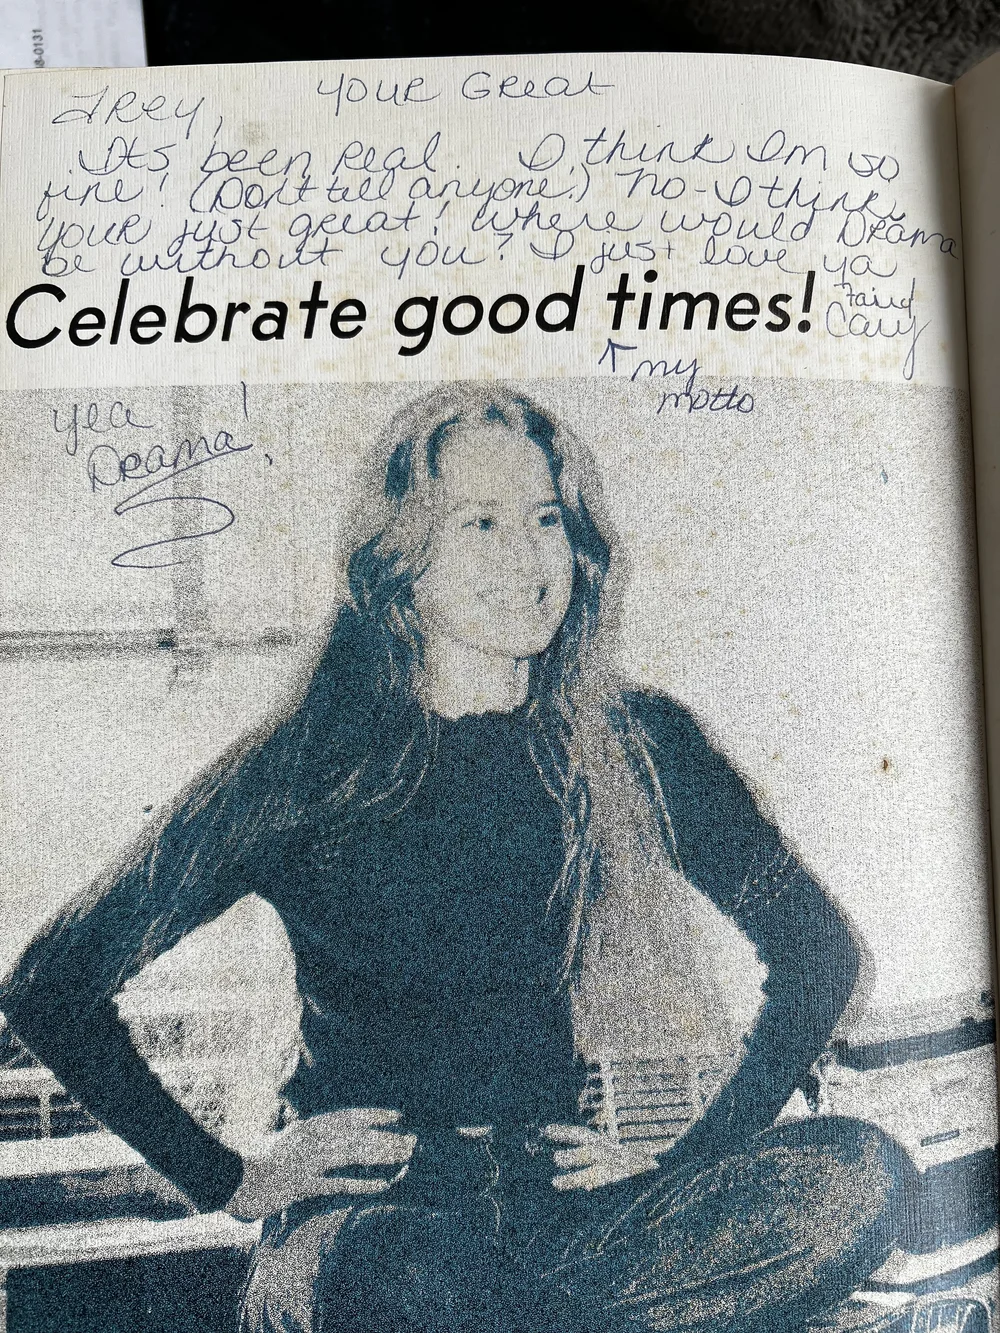 8-0131
Trey, your Great
Its been real. I think Im so
fine! (Don't tell anyone.) No - I think
your just great! Where would Drama
be without you? I just love ya
Celebrate good times!
↑ my
motto
yea !
Drama!